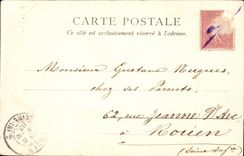 CARTE POSTALE
Ce côté est exclusivement réservé à l'adresse.
Monsieur Gustave Hugues
chez ses Parents.
62, rue Jeanne D'Arc
à Rouen
(Seine Infre)